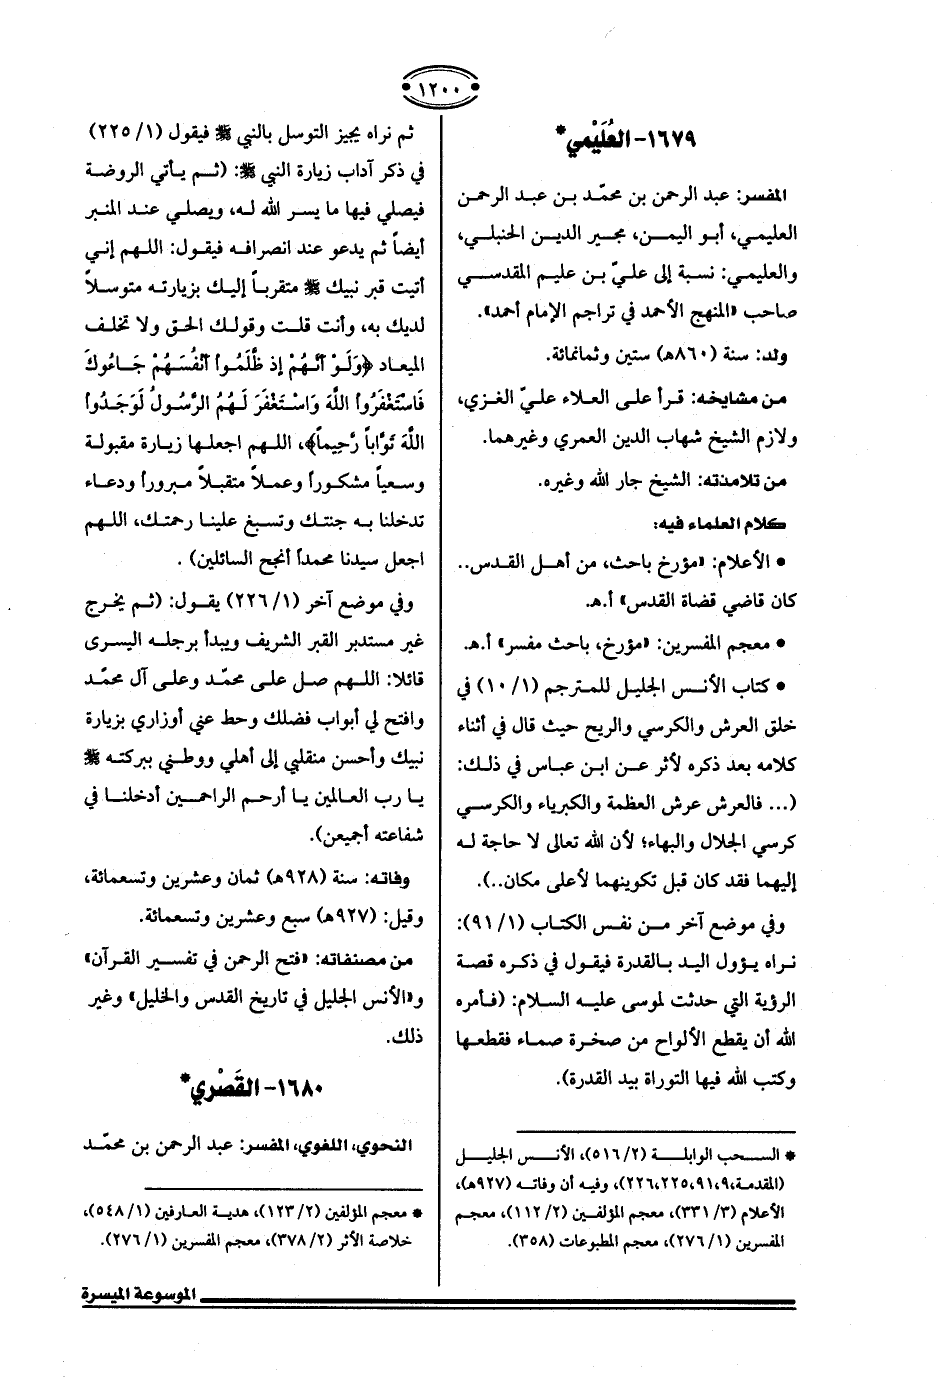 ١٢٠٠
١٦٧٩- العُلَيْمي*
المفسر: عبد الرحمن بن محمّد بن عبد الرحمن
العليمي، أبو اليمن، مجير الدين الحنبلي،
والعليمي: نسبة إلى عليّ بن عليم المقدسي
صاحب «المنهج الأحمد في تراجم الإمام أحمد».
ولد: سنة (٨٦٠هـ) ستين وثمانمائة.
من مشايخه: قرأ على العلاء عليّ الغزي،
ولازم الشيخ شهاب الدين العمري وغيرهما.
من تلامذته: الشيخ جار الله وغيره.
كلام العلماء فيه:
• الأعلام: «مؤرخ باحث، من أهل القدس..
كان قاضي قضاة القدس» أ.هـ.
• معجم المفسرين: «مؤرخ، باحث مفسر» أ.هـ.
• كتاب الأنس الجليل للمترجم (١/ ١٠) في
خلق العرش والكرسي والريح حيث قال في أثناء
كلامه بعد ذكره لأثر عن ابن عباس في ذلك:
(... فالعرش عرش العظمة والكبرياء والكرسي
كرسي الجلال والبهاء؛ لأن الله تعالى لا حاجة له
إليهما فقد كان قبل تكوينهما لأعلى مكان..).
وفي موضع آخر من نفس الكتاب (١/ ٩١):
نراه يؤول اليد بالقدرة فيقول في ذكره قصة
الرؤية التي حدثت لموسى عليه السلام: (فأمره
الله أن يقطع الألواح من صخرة صماء فقطعها
وكتب الله فيها التوراة بيد القدرة).
* السحب الوابلة (٢/ ٥١٦)، الأنس الجليل
(المقدمة،٩،٩١،٢٢٥،٢٢٦)، وفيه أن وفاته (٩٢٧هـ)،
الأعلام (٣/ ٣٣١)، معجم المؤلفين (٢/ ١١٢)، معجم
المفسرين (١/ ٢٧٦)، معجم المطبوعات (٣٥٨).
ثم نراه يجيز التوسل بالنبي ﷺ فيقول (١/ ٢٢٥)
في ذكر آداب زيارة النبي ﷺ: (ثم يأتي الروضة
فيصلي فيها ما يسر الله له، ويصلي عند المنبر
أيضاً ثم يدعو عند انصرافه فيقول: اللهم إني
أتيت قبر نبيك ﷺ متقرباً إليك بزيارته متوسلاً
لديك به، وأنت قلت وقولك الحق ولا تخلف
الميعاد ﴿وَلَوْ أَنَّهُمْ إِذ ظَّلَمُواْ أَنفُسَهُمْ جَاءُوكَ
فَاسْتَغْفَرُواْ اللَّهَ وَاسْتَغْفَرَ لَهُمُ الرَّسُولُ لَوَجَدُواْ
اللَّهَ تَوَّاباً رَّحِيماً﴾، اللهم اجعلها زيارة مقبولة
وسعياً مشكوراً وعملاً متقبلاً مبروراً ودعاء
تدخلنا به جنتك وتسبغ علينا رحمتك، اللهم
اجعل سيدنا محمداً أنجح السائلين) .
وفي موضع آخر (١/ ٢٢٦) يقول: (ثم يخرج
غير مستدبر القبر الشريف ويبدأ برجله اليسرى
قائلا: اللهم صل على محمّد وعلى آل محمّد
وافتح لي أبواب فضلك وحط عني أوزاري بزيارة
نبيك وأحسن منقلبي إلى أهلي ووطني ببركته ﷺ
يا رب العالمين يا أرحم الراحمين أدخلنا في
شفاعته أجمعين).
وفاته: سنة (٩٢٨هـ) ثمان وعشرين وتسعمائة،
وقيل: (٩٢٧هـ) سبع وعشرين وتسعمائة.
من مصنفاته: «فتح الرحمن في تفسير القرآن»
و«الأنس الجليل في تاريخ القدس والخليل» وغير
ذلك.
١٦٨٠- القَصْري*
النحوي، اللغوي، المفسر: عبد الرحمن بن محمّد
* معجم المؤلفين (٢/ ١٢٣)، هدية العارفين (١/ ٥٤٨)،
خلاصة الأثر (٢/ ٣٧٨)، معجم المفسرين (١/ ٢٧٦).
الموسوعة الميسرة